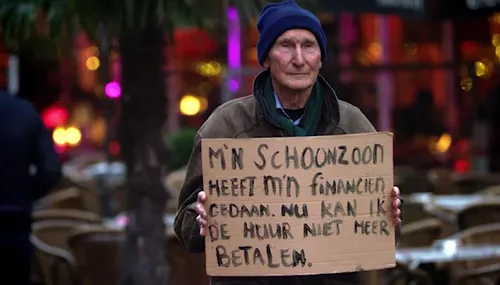 M'N SCHOONZOON
HEEFT M'N FINANCIËN
GEDAAN. NU KAN IK
DE HUUR NIET MEER
BETALEN.